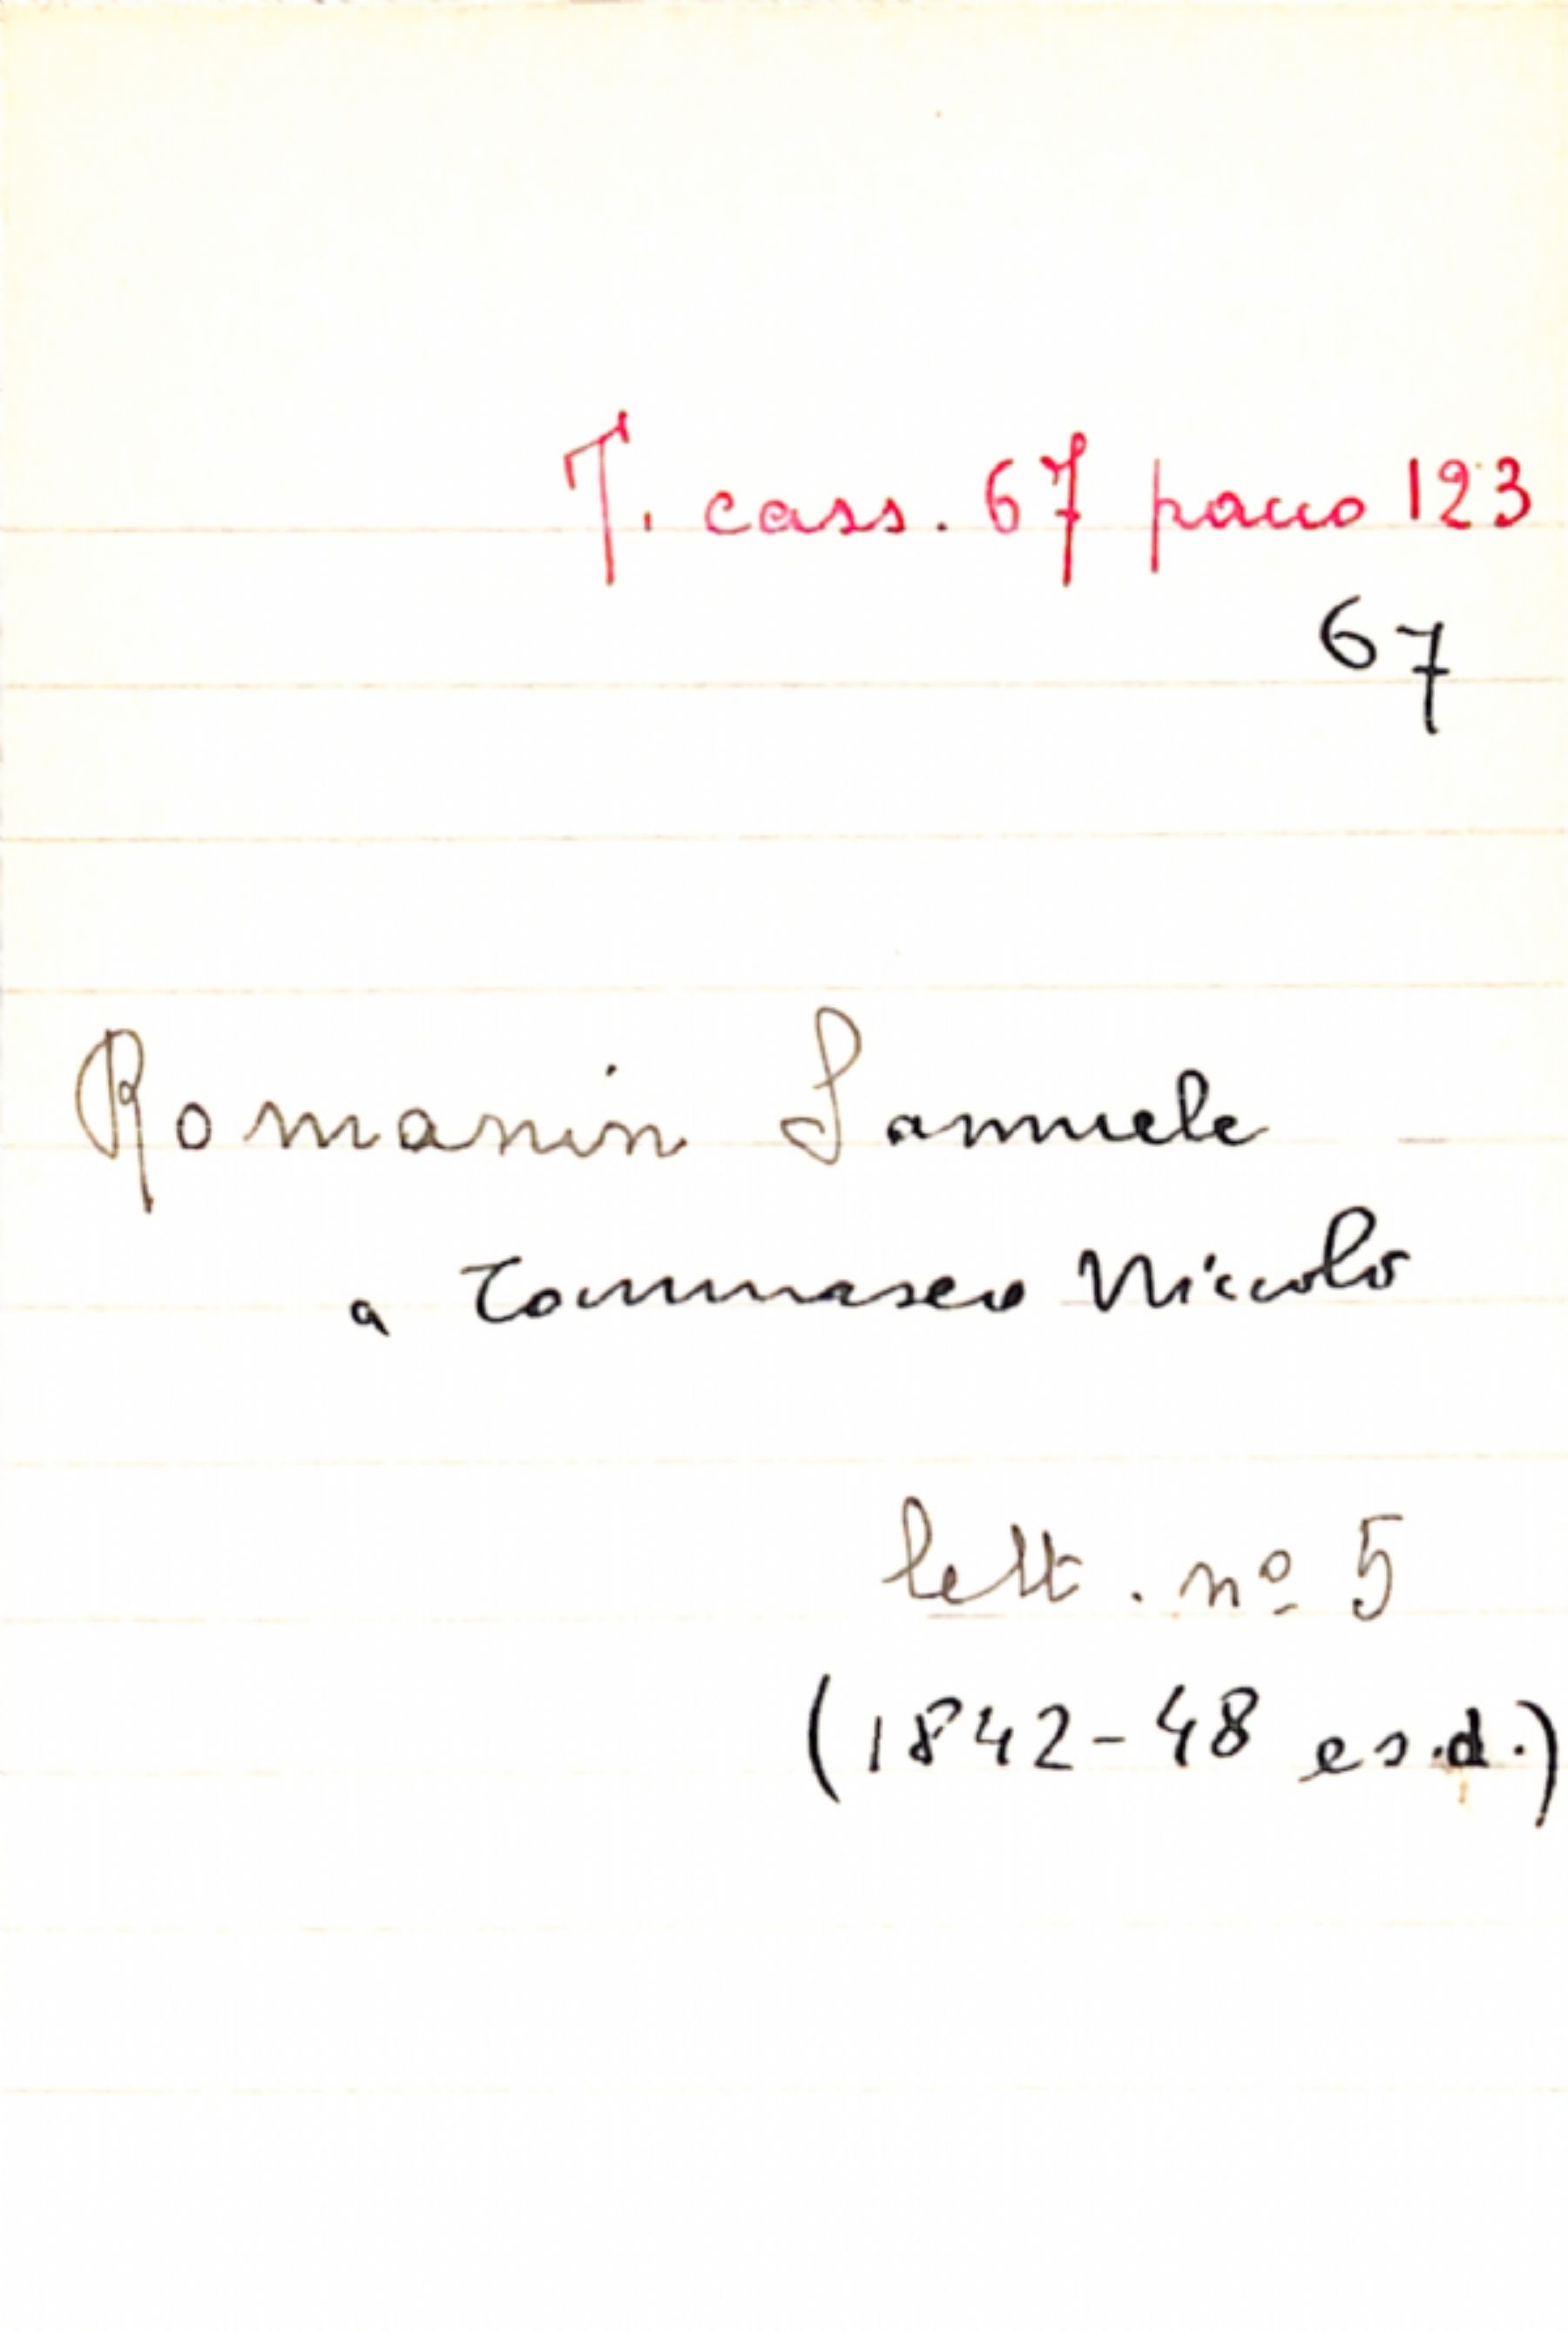 T. cass. 67 pacco 123
67
Romanin Samuele
a Tommaseo Niccolò
lett. nº 5
(1842-48 e s.d.)